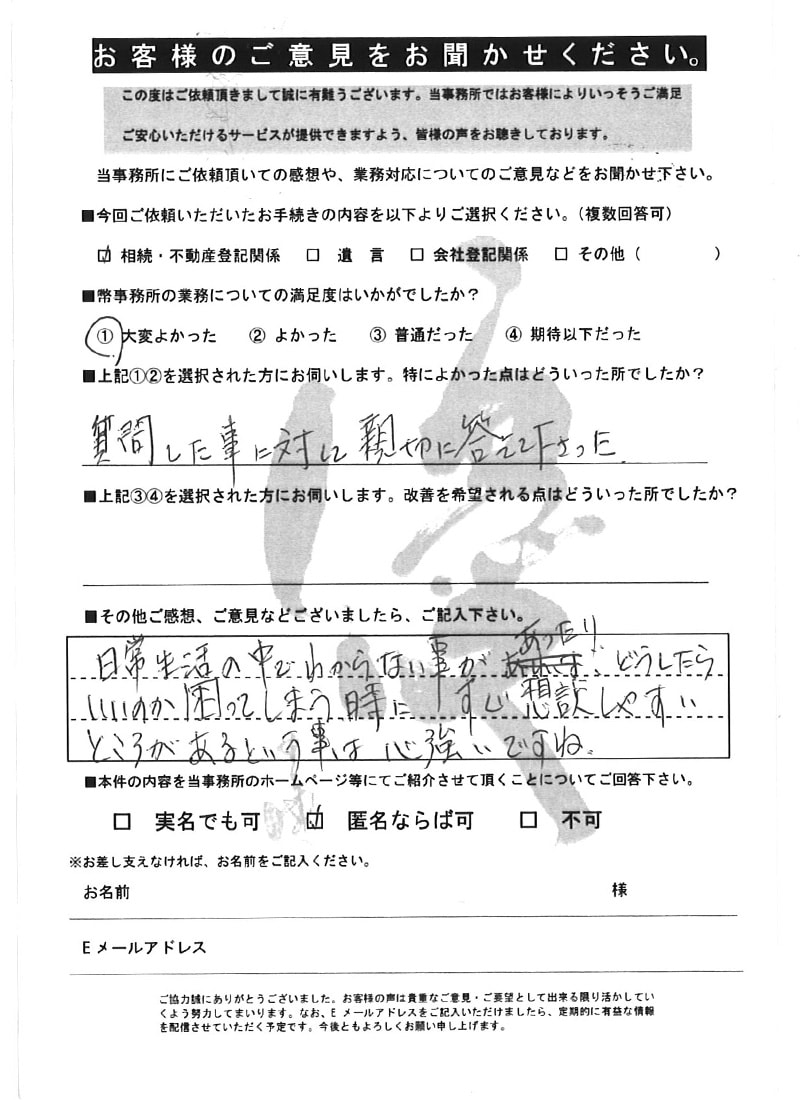 お客様のご意見をお聞かせください。
この度はご依頼頂きまして誠に有難うございます。当事務所ではお客様によりいっそうご満足
ご安心いただけるサービスが提供できますよう、皆様の声をお聴きしております。
当事務所にご依頼頂いての感想や、業務対応についてのご意見などをお聞かせ下さい。
■今回ご依頼いただいたお手続きの内容を以下よりご選択ください。（複数回答可）
☑ 相続・不動産登記関係 □ 遺 言 □ 会社登記関係 □ その他（ ）
■幣事務所の業務についての満足度はいかがでしたか？
① 大変よかった ② よかった ③ 普通だった ④ 期待以下だった
■上記①②を選択された方にお伺いします。特によかった点はどういった所でしたか？
質問した事に対して親切に答えて下さった.
■上記③④を選択された方にお伺いします。改善を希望される点はどういった所でしたか？
■その他ご感想、ご意見などございましたら、ご記入下さい。
日常生活の中でわからない事があったり、どうしたら
いいのか困ってしまう時にすぐ想談しやすい
ところがあるという事は心強いですね。
■本件の内容を当事務所のホームページ等にてご紹介させて頂くことについてご回答下さい。
□ 実名でも可 ☑ 匿名ならば可 □ 不可
※お差し支えなければ、お名前をご記入ください。
お名前 様
Eメールアドレス
ご協力誠にありがとうございました。お客様の声は貴重なご意見・ご要望として出来る限り活かしてい
くよう努力してまいります。なお、Eメールアドレスをご記入いただけましたら、定期的に有益な情報
を配信させていただく予定です。今後ともよろしくお願い申し上げます。